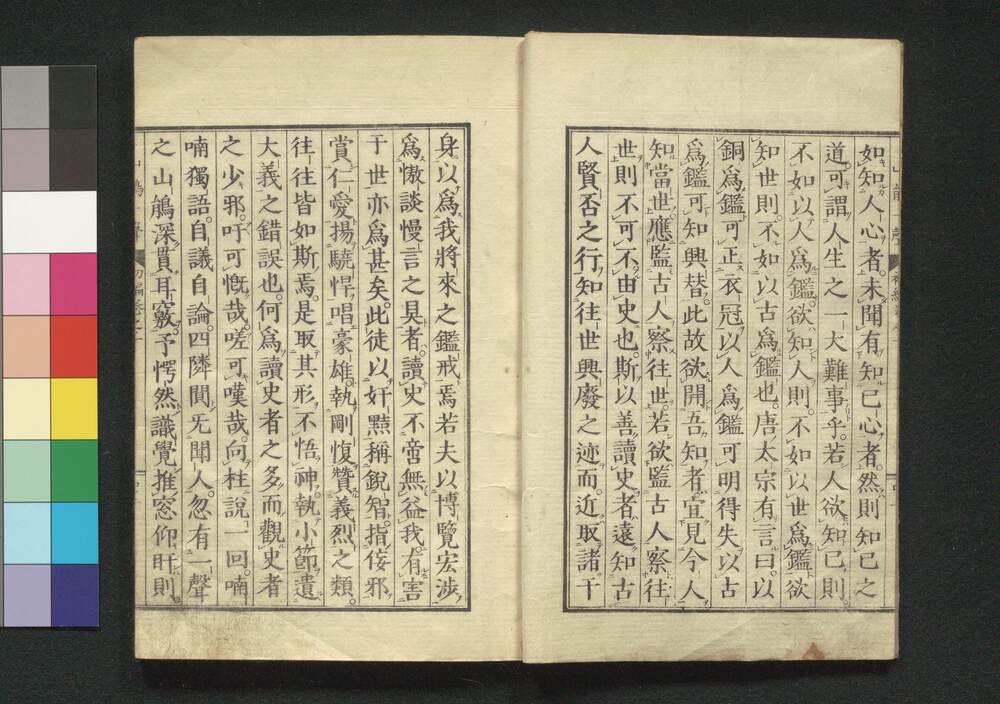 如知人心者未聞有知己心者然則知己之
道可謂人生之一大難事乎若人欲知己則
不如以人爲鑑欲知人則不如以世爲鑑欲
知世則不如以古爲鑑也唐太宗有言曰以
銅爲鑑可正衣冠以人爲鑑可明得失以古
爲鑑可知興替此故欲開吾知者宜見今人
知當世應監古人察往世若欲監古人察往
世則不可不由史也斯以善讀史者遠知古
人賢否之行知往世興廢之迹而近取諸干
身以爲我將來之鑑戒焉若夫以博覽宏渉
爲傲談慢言之具者讀史不啻無益我有害
于世亦爲甚矣此徒以奸黠稱銳智指佞邪
賞仁愛揚驍悍唱豪雄執剛愎贊義烈之類
往往皆如斯焉是取其形不悟神執小節遺
大義之錯誤也何爲讀史者之多而觀史者
之少邪吁可慨哉嗟可嘆哉向柱說一回喃
喃獨語自議自論四隣間旡聞人忽有一聲
之山鵑深貫耳竅予愕然識覺推窓仰旰則